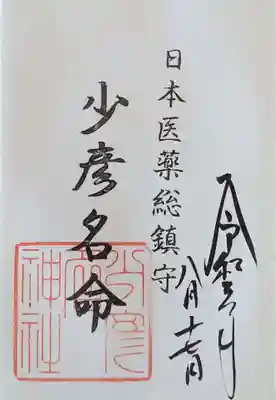 令和
八月十七日
日本医薬総鎮守
少彦名命
少彦名神社